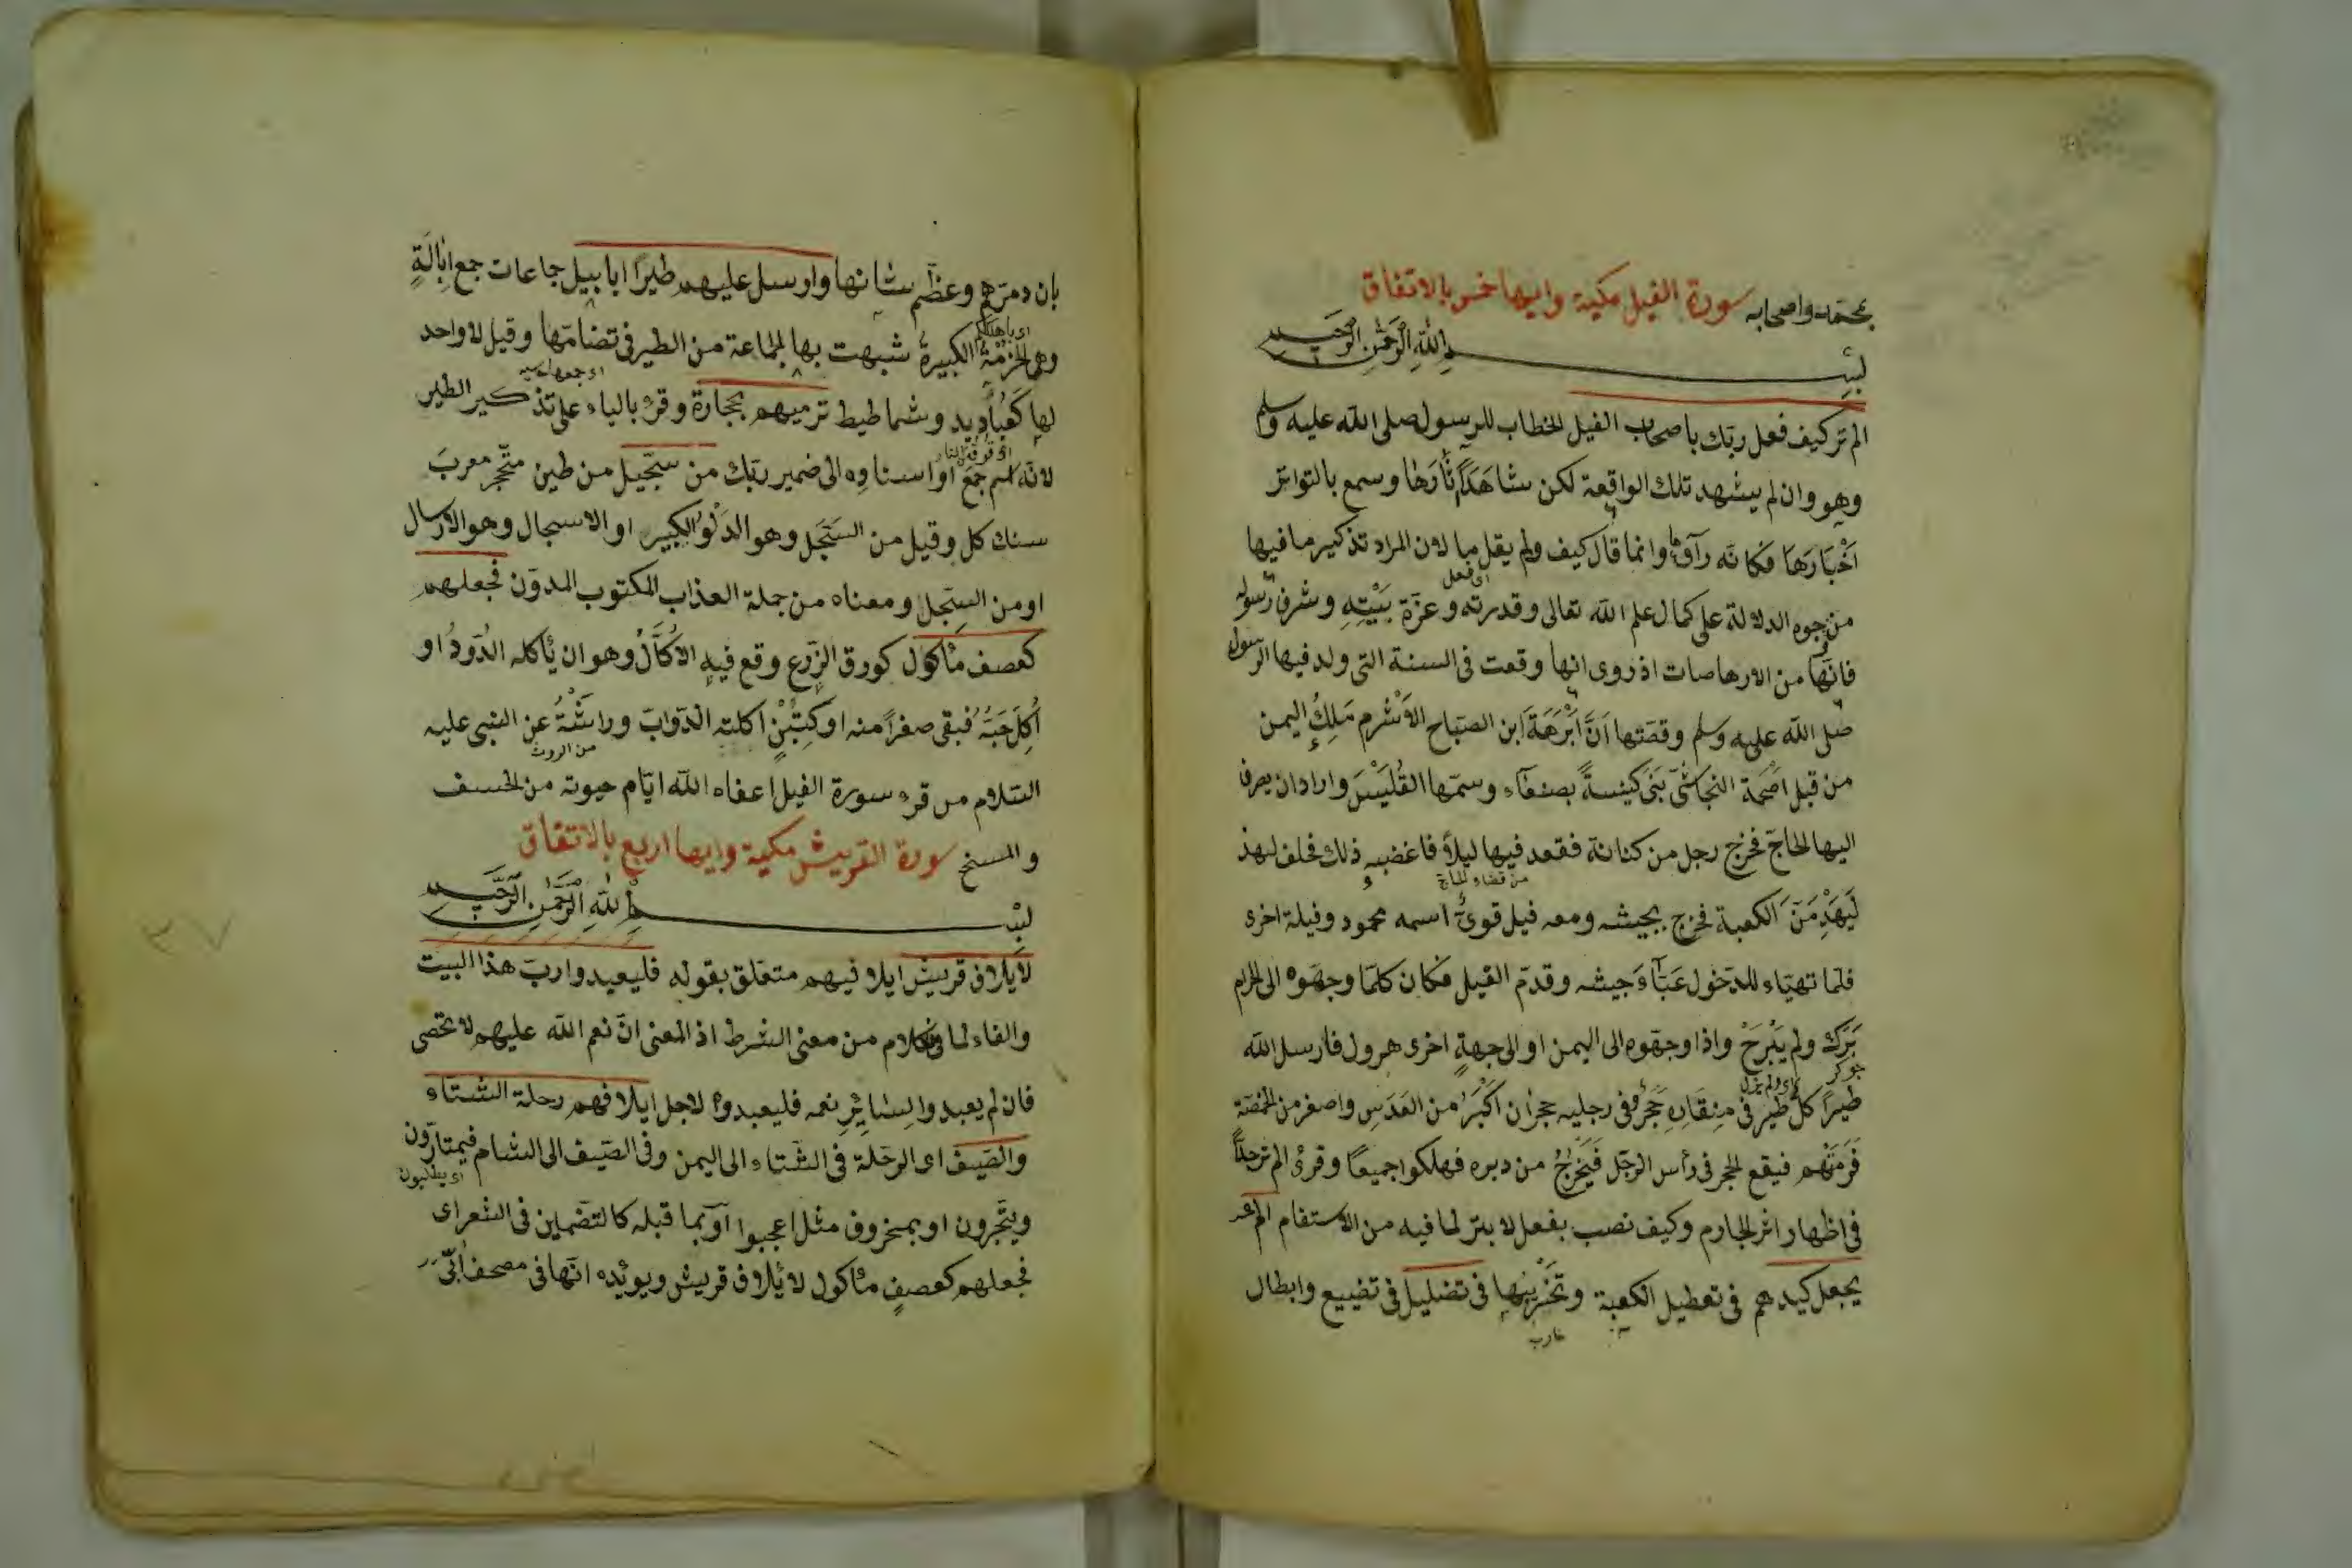 بمحمد واصحابه سورة الفيل مكية وايها خمس بالاتفاق
بسم الله الرحمن الرحيم
الم تر كيف فعل ربك باصحاب الفيل الخطاب للرسول صلى الله عليه وسلم
وهو وان لم يشهد تلك الواقعة لكن شاهد آثارها وسمع بالتواتر
اَخْبَارَهَا فكانه رآها وانما قال كيف ولم يقل ما لان المراد تذكير ما فيها
اى فعل
من وجوه الدلالة على كمال علم الله تعالى وقدرته وعزّة بَيْتِهِ وشرف رسوله
فانها من الارهاصات اذ روى انها وقعت فى السنة التى ولد فيها الرسول
صلى الله عليه وسلم وقصتها اَنَّ اَبْرَهَةَ ابن الصبّاح الاَشْرم مَلِكُ اليمن
من قبل اصحمة النجاشى بَنَى كنيسةً بصنعاء وسمّها القُلَيْسَ واراد ان يصرف
اليها الحاجّ فخرج رجل من كنانة فقعد فيها ليلاً فاغضبه ذلك فحلف لهذ
من قضاء الحاج
لَيَهْدِمَنَّ الكعبة فخرج بجيشه ومعه فيل قوىّ اسمه محمود وفيلة اخرى
فلمّا تهيّاء للدخول عَبَّاءَ جيشه وقدّم الفيل فكان كلمّا وجهوه الى الحرم
بَرَكَ ولم يَبْرَحْ واذا وجهوه الى اليمن او الى جهةٍ اخرى هرول فارسل الله
جوكر اى ولم يزل
طيرًا كلّ طير فى مِنقارِهِ حَجَرٌ وفى رجليه حجران اَكْبَرُ من العَدَسِ واصغر من الحمّصة
فَرَمَتْهم فيقع الحجر فى رأس الرجل فَيَخْرُجُ من دبره فهلكوا جميعًا وقرئ الم تر جدًّا
فى اظهار اثر الجازم وكيف نصب بفعل لا بتر لما فيه من الاستفام الم
يجعل كيدهم فى تعطيل الكعبة وتَخْرِيْبِها فى تضليل فى تضييع وابطال
بان دمرهم وعظّم شانها وارسل عليهم طيرًا ابابيل جاعات جمع اِبَّالَةٍ
وهى الحزمَةُ الكبيرةُ شبهت بها الجماعة من الطير فى تضامّها وقيل لا واحد
لها كَعَبَادِيد وشماطيط ترميهم بحجارة وقرئ بالياء على تذكير الطير
لانّه اسم جَمْع او اسناده الى ضمير ربّك من سجّيل من طين متحجّر معرب
سنك كل وقيل من السَّجل وهو الدَلْوُ الكبير او الاسجال وهو الارسال
او من السِجّل ومعناه من جملة العذاب المكتوب المدوّن فجعلهم
كعصف مأكول كورق الزرع وقع فيه الاُكَّالُ وهو ان يأكله الدُود او
اُكِلَ حَبُّهُ فبقى صفرًا منه او كَتِبْنٍ اكلته الدوابّ وراثَتْهُ عن النبى عليه
من الروث
السلام من قرء سورة الفيل اعفاه الله ايّام حيوته من الخسف
والمسخ سورة القريش مكية وايها اربع بالاتفاق
بسم الله الرحمن الرحيم
لايلاف قريش ايلافهم متعلّق بقوله فليعبدوا ربّ هذا البيت
والفاء لما فى الكلام من معنى الشرط اذ المعنى انّ نعم الله عليهم لا تحصى
فان لم يعبدوا لِسائِرِ نعمه فليعبدوه لاجل ايلافهم رحلة الشتاء
والصّيف اى الرحلة فى الشتاء الى اليمن وفى الصّيف الى الشام فيمتارون
اى يطلبون
ويتّجرون او بمحذوف مثل اعجبوا او بما قبله كالتضمين فى الشعر اى
فجعلهم كعصفٍ مأكول لايلاف قريش ويويّده انّها فى مصحف اُبَىّ